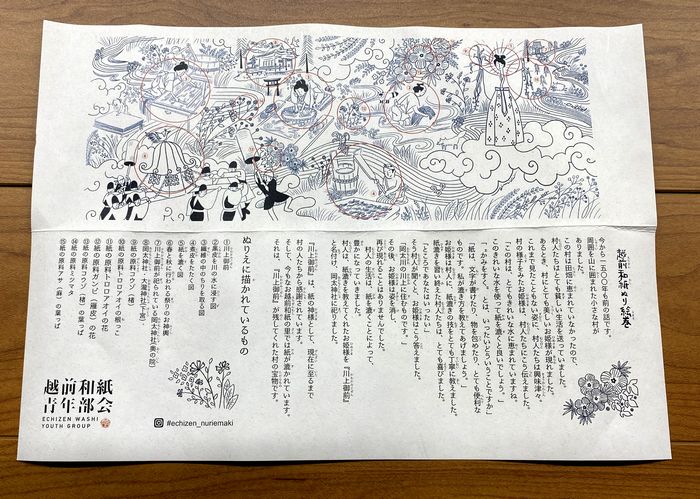 越前和紙ぬり絵巻
今から一五〇〇年も前の話です。
周囲を山に囲まれた小さな村が
ありました。
この村は田畑に恵まれていなかったので、
村人たちはとても貧しい生活を送っていました。
あるとき、村にとても美しいお姫様が現れました。
村の様子をみたお姫様は、村人たちにこう伝えました。
「この村は、とてもきれいな水に恵まれていますね。
このきれいな水を使って紙を漉くと良いでしょう。」
「…かみをすく、とは、いったいどういうことですか」
「紙は、文字が書けたり、物を包めたり、とても便利な
ものです。私が漉き方を教えてさしあげましょう。」
お姫様は村人に、紙漉きの技をとても丁寧に教えました。
紙漉きを習い終えた村人たちは、とても喜びました。
「ところであなたはいったい」
そう村人が聞くと、お姫様はこう答えました。
「岡太川の川上に住むものです。」
その後、お姫様は姿を消し、
再び現れることはありませんでした。
村人の生活は、紙を漉くことによって、
豊かになっていきました。
村人は、紙漉きを教えてくれたお姫様を『川上御前』
と名付け、岡太神社に祀りました。
『川上御前』は、紙の神様として、現在に至るまで
村の人たちから感謝されています。
そして、今もなお越前和紙の里では紙が漉かれています。
それは、『川上御前』が残してくれた村の宝物です。
ぬりえに描かれているもの
①川上御前
②黒皮を川の水に浸す図
③繊維の中のちりを取る図
④煮皮をたたく図
⑤紙を漉く図
⑥春と秋に賑わう祭りのお神輿
⑦川上御前が祀られている岡太神社(奥の院)
⑧岡太神社・大瀧神社(下宮)
⑨紙の原料コウゾ(楮)
⑩紙の原料トロロアオイの根っこ
⑪紙の原料トロロアオイの花
⑫紙の原料ガンピ(雁皮)の花
⑬紙の原料コウゾ(楮)の葉っぱ
⑭紙の原料ミツマタ
⑮紙の原料アサ(麻)の葉っぱ
越前和紙
青年部会
ECHIZEN WASHI
YOUTH GROUP
#echizen_nuriemaki